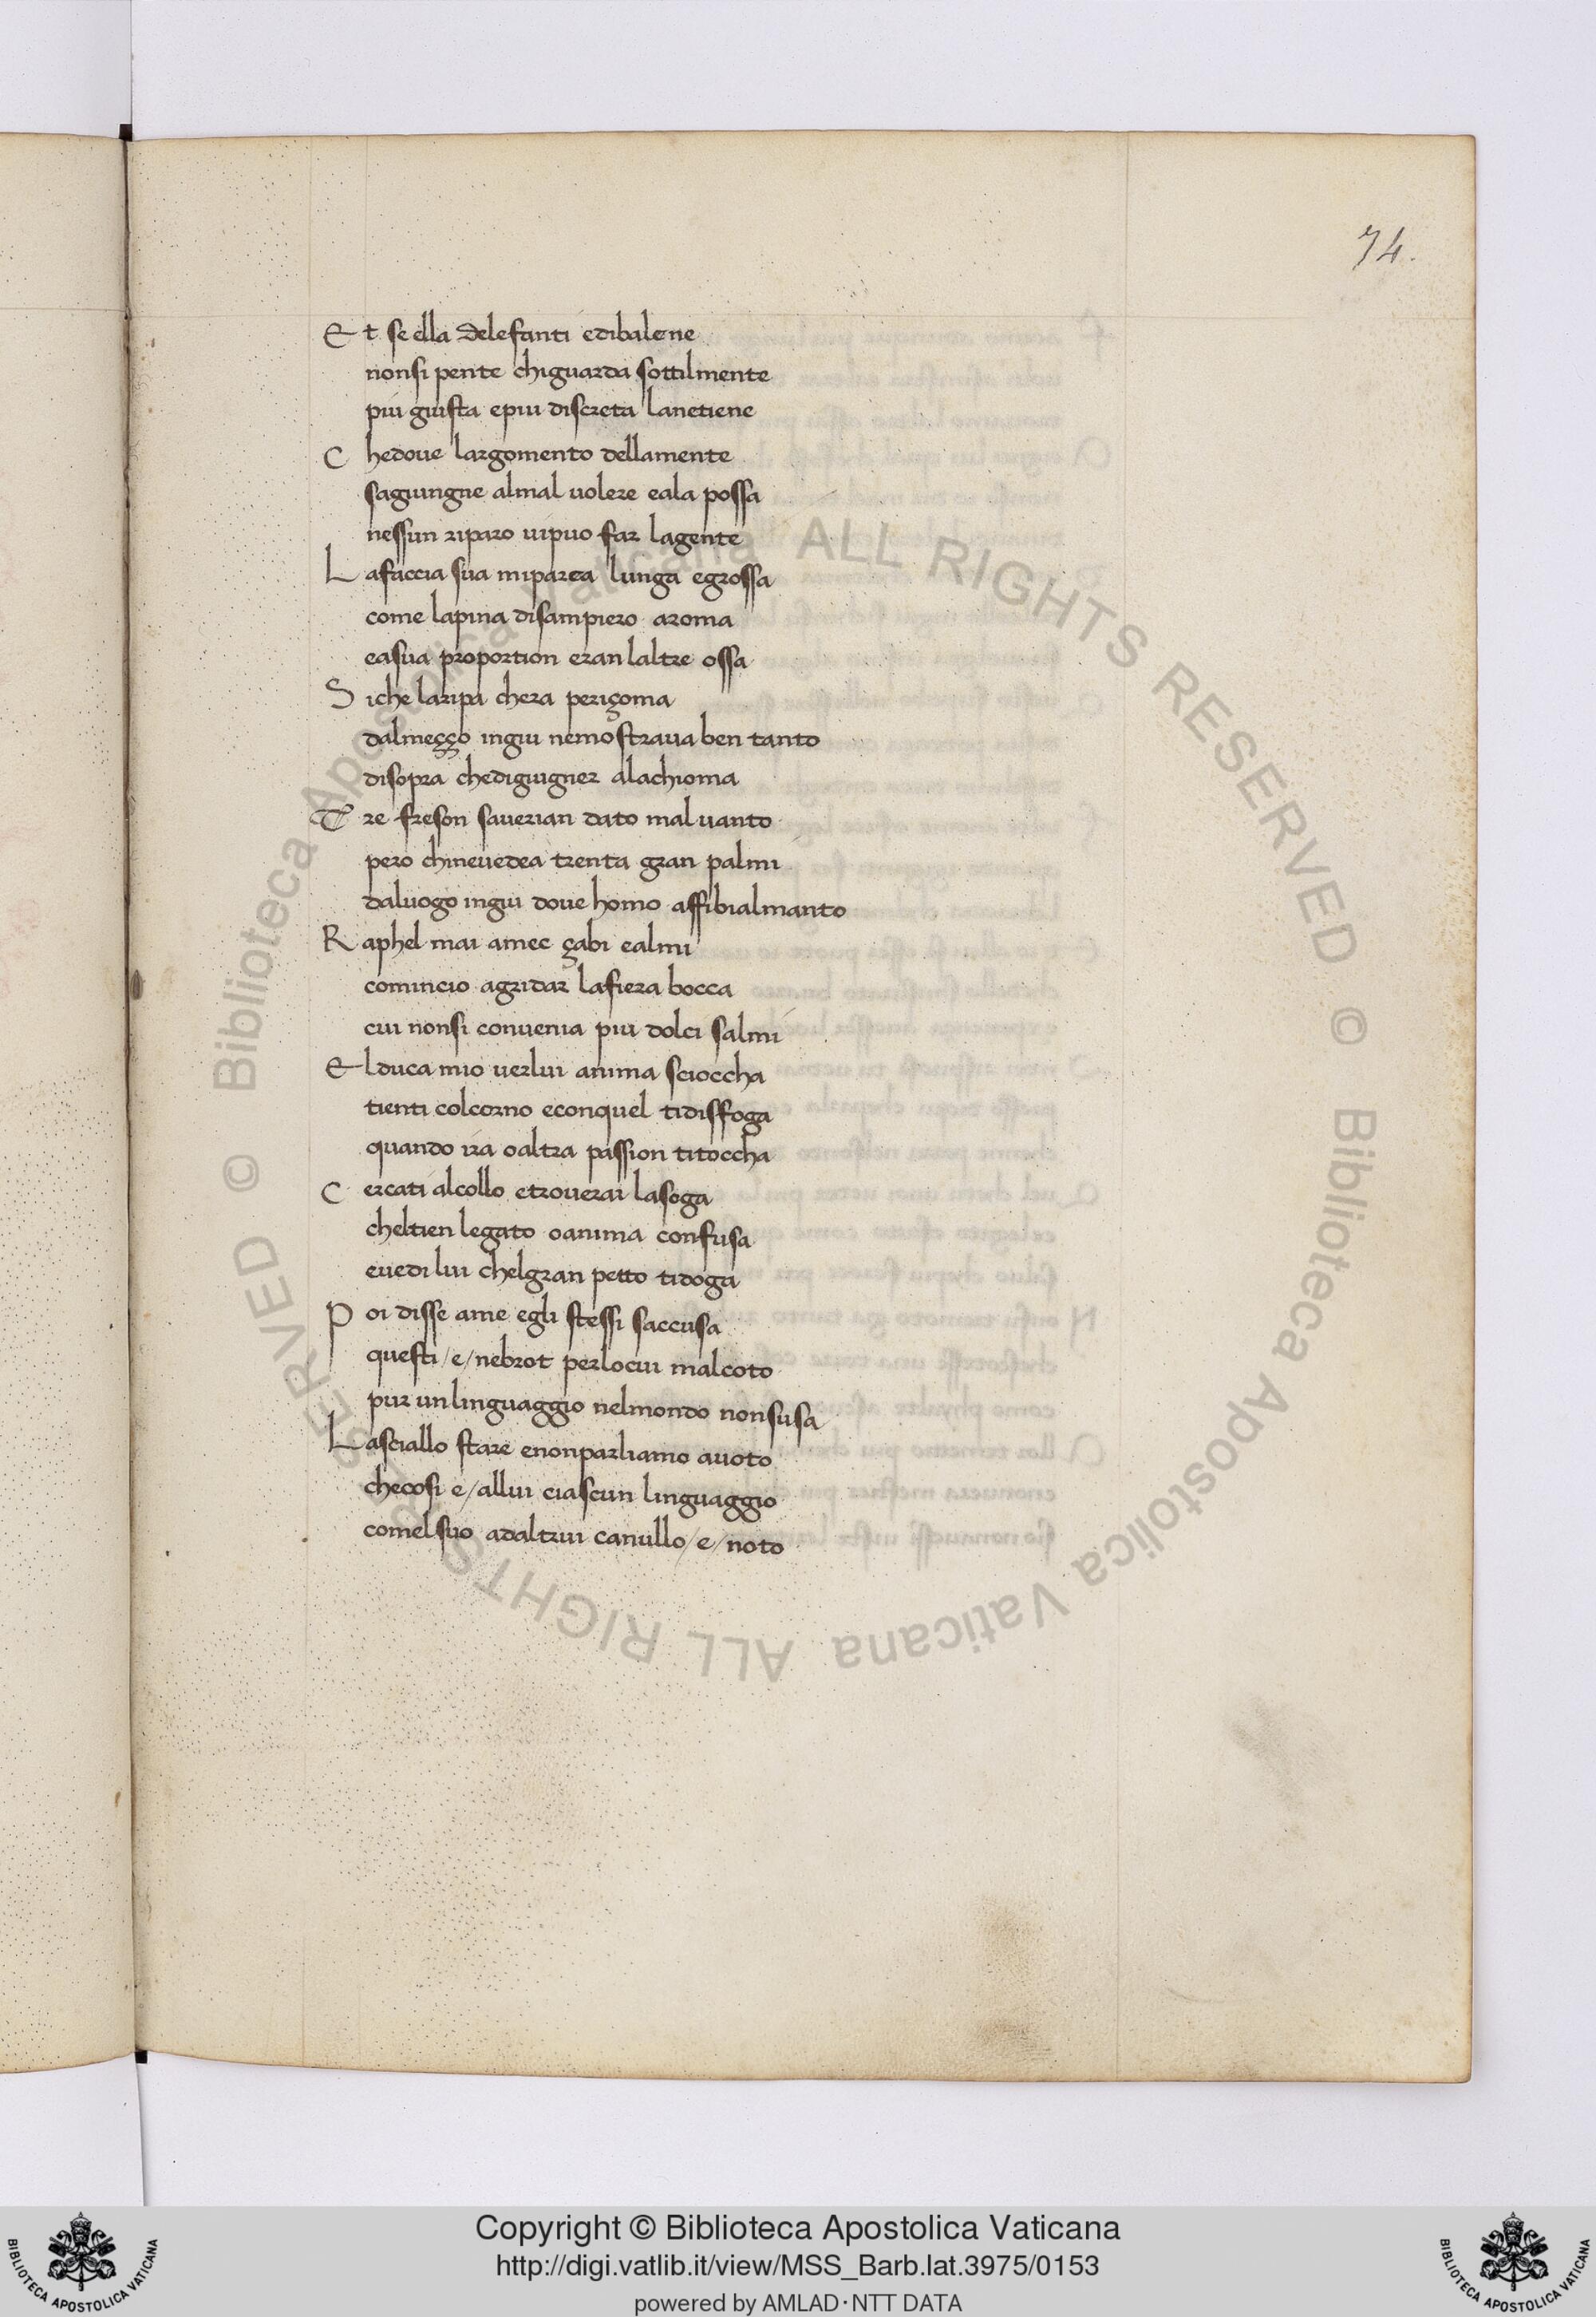 74.
Et se ella delefanti edibalene
nonsi pente chiguarda sottilmente
piu giusta epiu discreta lanetiene
Chedoue largomento dellamente
sagiungne almal uolere eala possa
nessun riparo uipuo far lagente
Lafaccia sua miparea lunga egrossa
come lapina disampiero aroma
easua proportion eran laltre ossa
Siche laripa chera periçoma
dalmeçço ingiu nemostraua ben tanto
disopra chedigiugner alachioma
Tre freson sauerian dato mal uanto
pero chineuedea trenta gran palmi
daluogo ingiu doue homo affibialmanto
Raphel mai amec çabi ealmi
comincio agridar lafiera bocca
cui nonsi conuenia piu dolci salmi
Elduca mio uerlui anima scioccha
tienti colcorno econquel tidisffoga
quando ira oaltra passion titoccha
Cercati alcollo etrouerai lasoga
cheltien legato oanima confusa
euedi lui chelgran petto tidoga
Poi disse ame egli stessi saccusa
questi/e/nebrot perlocui malcoto
pur unlinguaggio nelmondo nonsusa
Lasciallo stare enonparliamo auoto
checosi e/allui ciascun linguaggio
comelsuo adaltrui canullo/e/noto
© Biblioteca Apostolica Vaticana ALL RIGHTS RESERVED © Biblioteca Apostolica Vaticana ALL RIGHTS RESERVED
BIBLIOTECA APOSTOLICA VATICANA
Copyright © Biblioteca Apostolica Vaticana
http://digi.vatlib.it/view/MSS_Barb.lat.3975/0153
powered by AMLAD·NTT DATA
BIBLIOTECA APOSTOLICA VATICANA